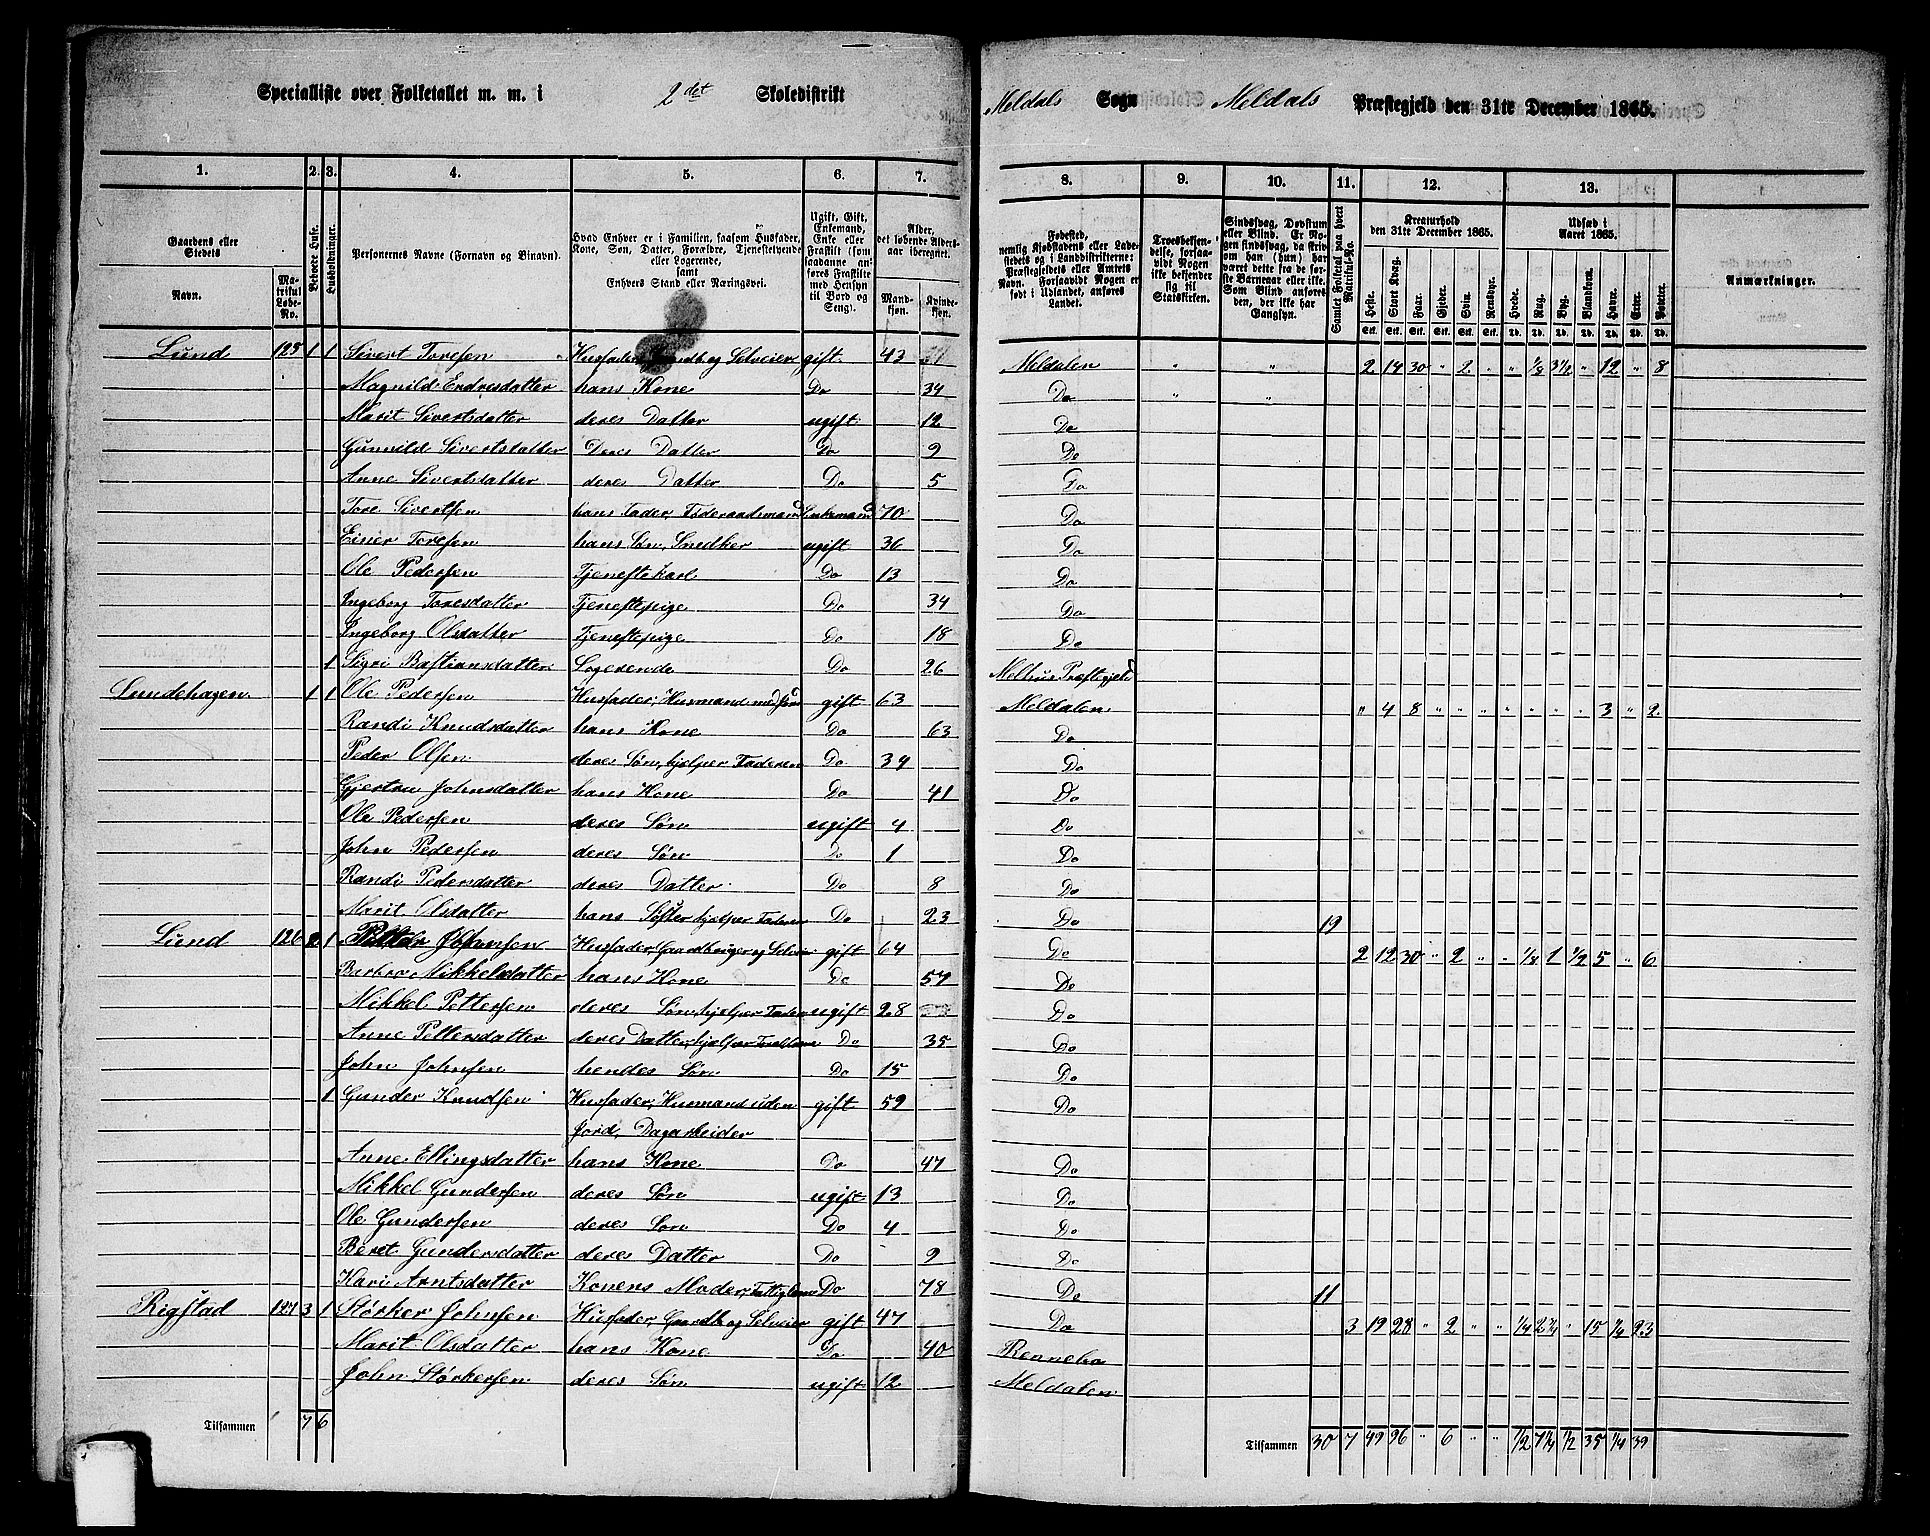 Specialliste over Folketallet m. m. i 2det Skoledistrikt Meldals Sogn Meldals Præstegjeld den 31te December 1865.
1. 2. 3. 4. 5. 6. 7. 8. 9. 10. 11. 12. 13.
Gaardens eller Stedets Navn. Matrikul Løbe-No. Beboede Huse. Husholdninger. Personernes Navne (Fornavn og Binavn). Hvad Enhver er i Familien, saasom Husfader, Kone, Søn, Datter, Forældre, Tjenestetyende eller Logerende, samt Enhvers Stand eller Næringsvei. Ugift, Gift, Enkemand, Enke eller Fraskilt (som saadanne anføres Fraskilte med Hensyn til Bord og Seng). Alder, det løbende Aldersaar iberegnet. Mandkjøn. Kvindekjøn.
Fødested, nemlig Kjøbstadens eller Ladestedets og i Landdistrikterne: Præstegjeldets eller Amtets Navn. Forsaavidt Nogen er født i Udlandet, anføres Landet. Troesbekjendelse, forsaavidt Nogen ikke bekjender sig til Statskirken. Sindssvag, Døvstum eller Blind. Er Nogen sindssvag, da skrives om han (hun) har været dette fra de første Barneaar eller ikke. Som Blind anføres den, der ikke har Gangsyn. Samlet Folketal paa hvert Matrikul-No. Kreaturhold den 31te December 1865. Heste. Stort Kvæg. Faar. Gjeder. Svin. Rensdyr. Udsæd i Aaret 1865. Hvede. Rug. Byg. Blandkorn. Havre. Erter. Poteter. Anmærkninger.
Lund 125 1 1 Sivert Toresen Husfader, Gaardb og Selveier gift 43 Meldalen " " 2 14 30 " 2 " " 1/8 3 1/2 " 12 " 8
Magnild Endresdatter hans Kone Do 34 Do " "
Marit Sivertsdatter deres Datter ugift 12 Do
Gunnild Sivertsdatter Deres Datter Do 9 Do
Anne Sivertsdatter deres Datter Do 5 Do
Tore Sivertsen hans Fader, Føderaadsmand Enkemand 70 Do
Einer Toresen hans Søn, Snedker ugift 36 Do
Ole Pedersen Tjenestekarl Do 13 Do
Ingeborg Toresdatter Tjenestepige Do 34 Do
Ingeborg Olsdatter Tjenestepige Do 18 Do
1 Sigri Bastiansdatter Logerende Do 26 Melhus Præstegjeld
Lundehagen 1 1 Ole Pedersen Husfader, Husmand med Jord gift 63 Meldalen " 4 8 " " " " " " " 3 " 2
Randi Knudsdatter hans Kone Do 63 Do
Peder Olsen deres Søn, hjelper Faderen Do 34 Do
Gjertru Johnsdatter hans Kone Do 41 Do
Ole Pedersen deres Søn ugift 4 Do
John Pedersen deres Søn Do 1 Do
Randi Pedersdatter deres Datter Do 8 Do
Marit Olsdatter hans Søster hjelper Faderen Do 23 Do 19
Lund 126 2 1 Petter Johnsen Husfader, Gaardbruger og Selveier gift 64 Do 2 12 30 " 2 " " 1/8 1 1/2 5 " 6
Mikkelsdatter hans Kone Do 57 Do
Mikkel Pettersen deres Søn, hjelper Faderen ugift 28 Do
Anne Pettersdatter deres Datter, hjelper Forældrene Do 35 Do
John Johnsen hendes Søn Do 15 Do
1 Gunder Knudsen Husfader, Husmand uden gift 59 Do
Jord, Dagarbeider
Anne Ellingsdatter hans Kone Do 47 Do
Mikkel Gundersen deres Søn ugift 13 Do
Ole Gundersen deres Søn Do 4 Do
Beret Gundersdatter deres Datter Do 9 Do
Kari Arntsdatter Konens Moder, Fattiglem Do 78 Do 11
Rigstad 127 3 1 Størker Johnsen Husfader, Gaardb og Selveier gift 47 Do 3 19 28 " 2 " " 1/4 2 3/4 " 15 1/4 23
Marit Olsdatter hans Kone Do 40 Rennebo
John Størkersen deres Søn ugift 12 Meldalen
Tilsammen 7 6 Tilsammen 30 7 49 96 " 6 " " 1/2 7 1/4 1/2 35 1/4 39